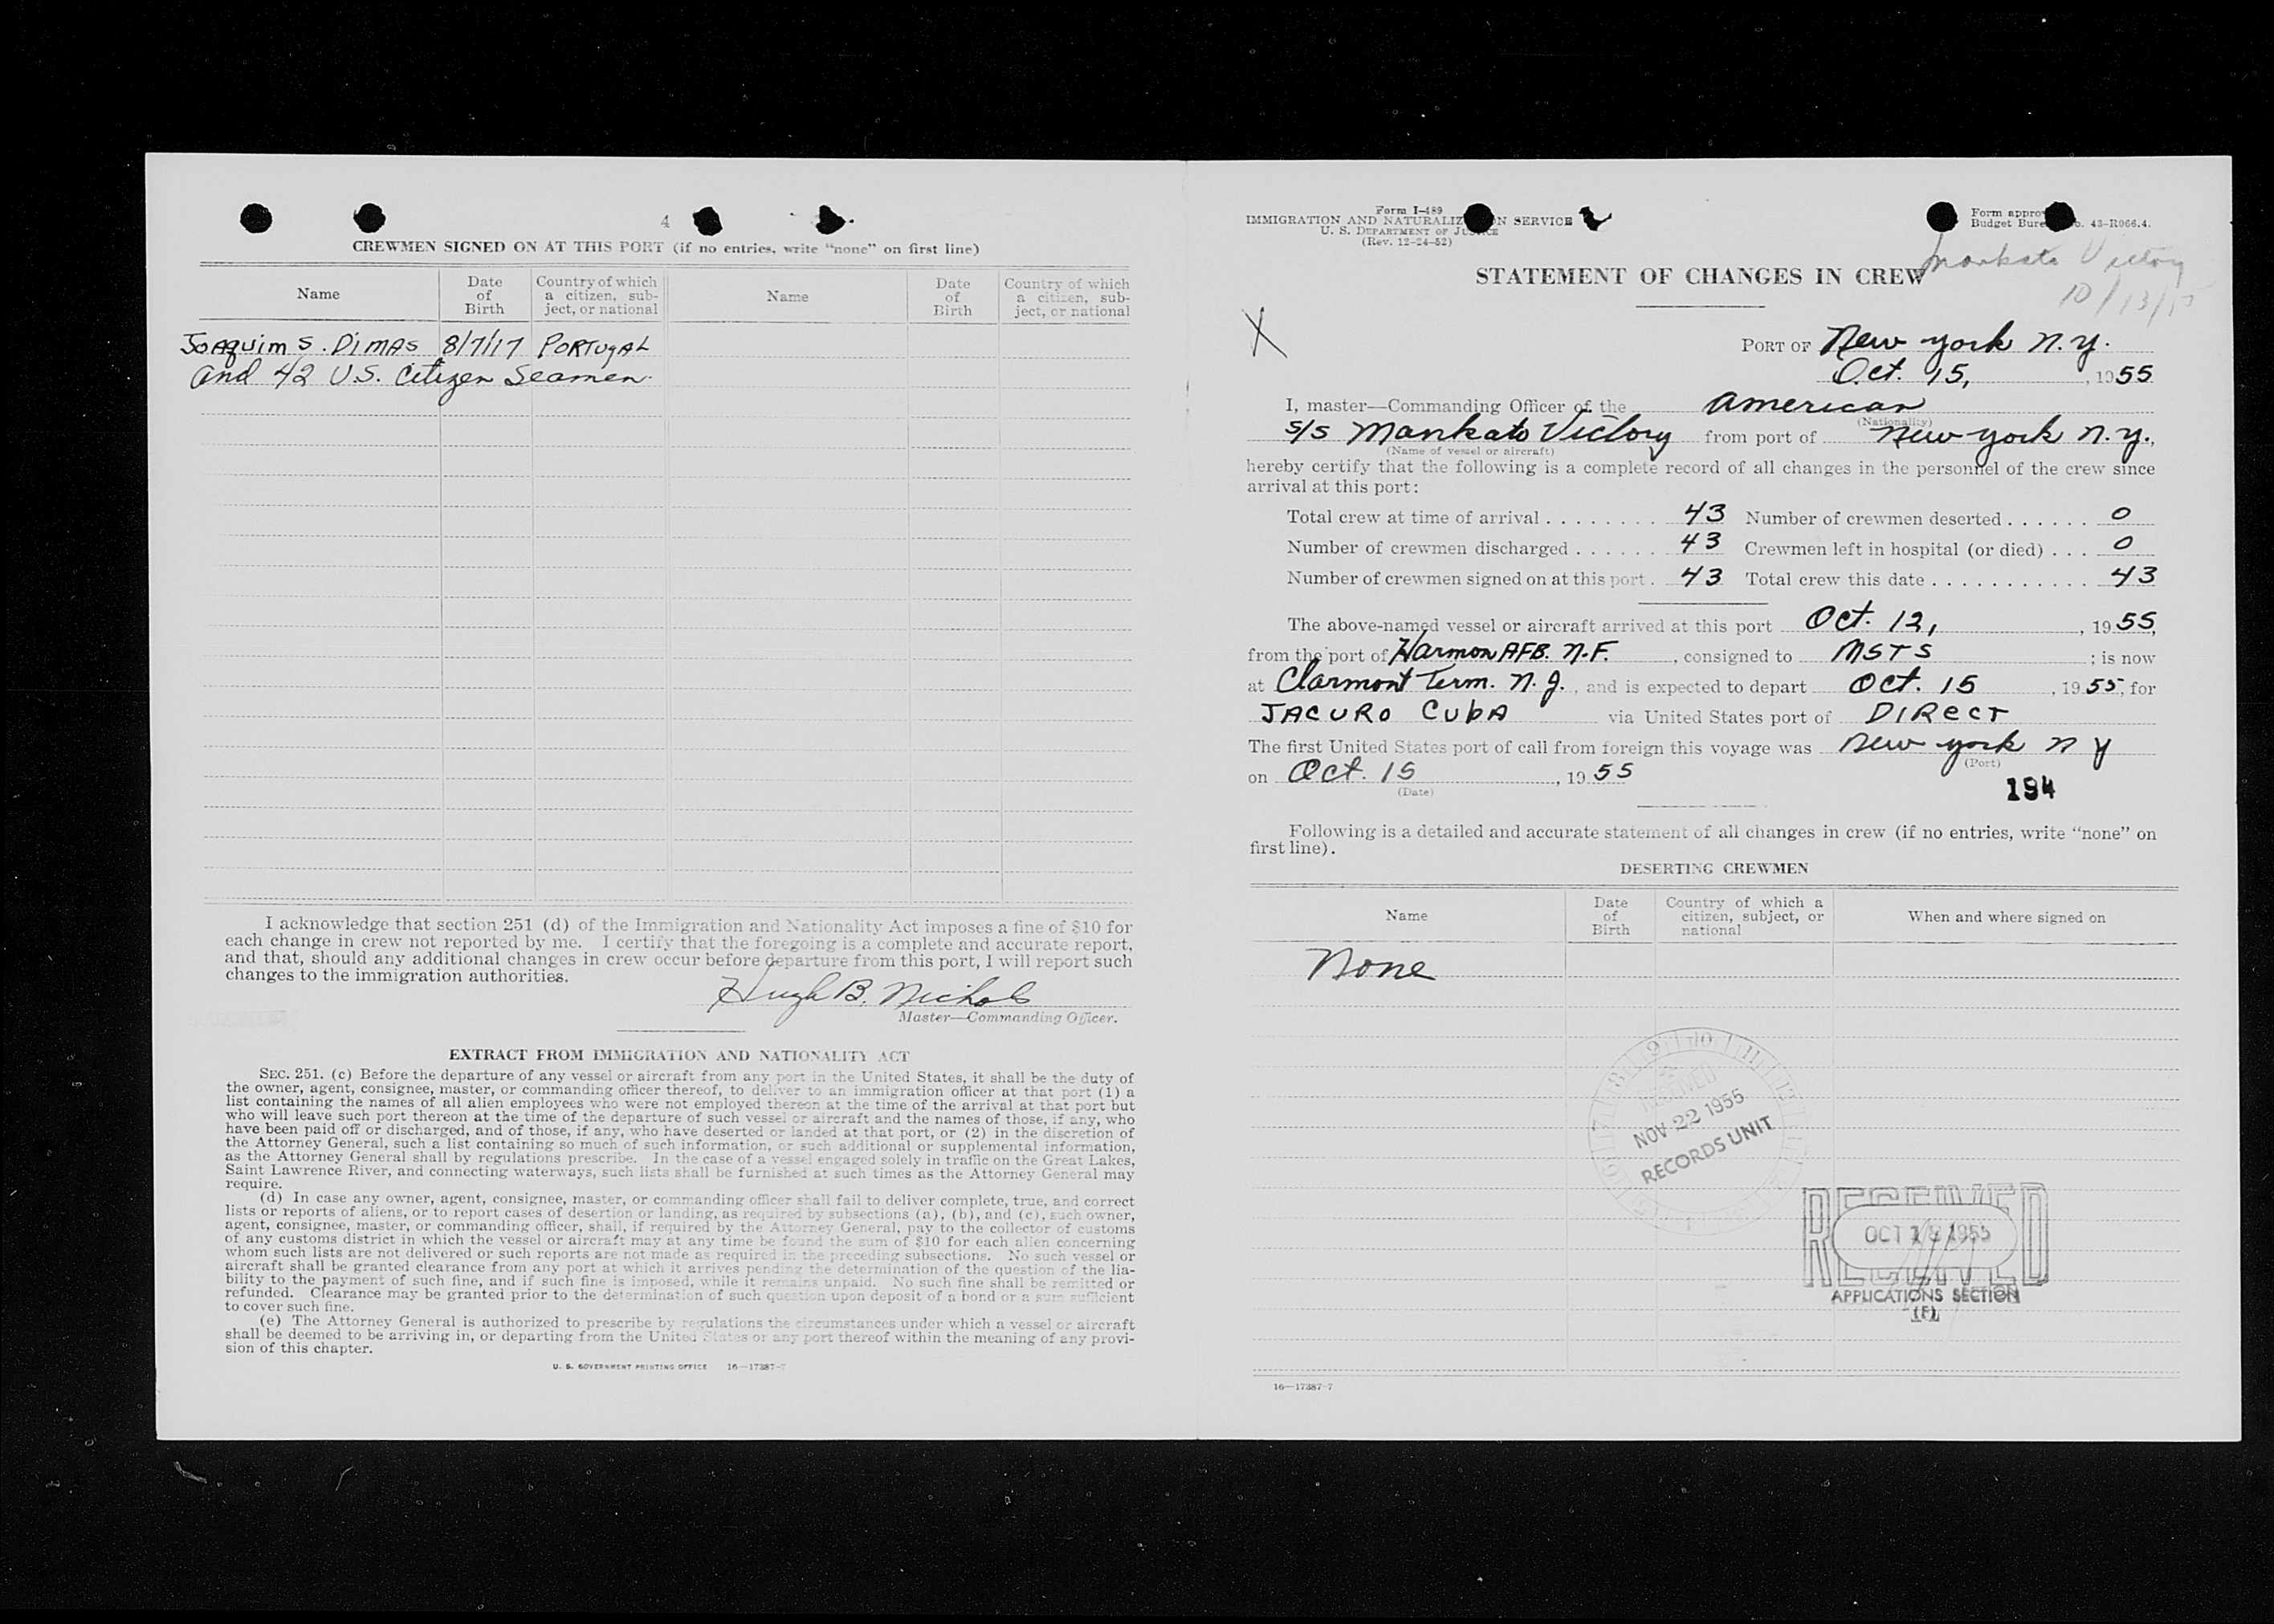 4
CREWMEN SIGNED ON AT THIS PORT (if no entries, write "none" on first line)
Name
Date of Birth
Country of which a citizen, subject, or national
Name
Date of Birth
Country of which a citizen, subject, or national
Joaquim S. Dimas 8/7/17 PORTugAL
and 42 U.S. Citizen Seamen.
I acknowledge that section 251 (d) of the Immigration and Nationality Act imposes a fine of $10 for
each change in crew not reported by me. I certify that the foregoing is a complete and accurate report,
and that, should any additional changes in crew occur before departure from this port, I will report such
changes to the immigration authorities.
Hugh B. Nichols
Master—Commanding Officer.
EXTRACT FROM IMMIGRATION AND NATIONALITY ACT
SEC. 251. (c) Before the departure of any vessel or aircraft from any port in the United States, it shall be the duty of
the owner, agent, consignee, master, or commanding officer thereof, to deliver to an immigration officer at that port (1) a
list containing the names of all alien employees who were not employed thereon at the time of the arrival at that port but
who will leave such port thereon at the time of the departure of such vessel or aircraft and the names of those, if any, who
have been paid off or discharged, and of those, if any, who have deserted or landed at that port, or (2) in the discretion of
the Attorney General, such a list containing so much of such information, or such additional or supplemental information,
as the Attorney General shall by regulations prescribe. In the case of a vessel engaged solely in traffic on the Great Lakes,
Saint Lawrence River, and connecting waterways, such lists shall be furnished at such times as the Attorney General may
require.
(d) In case any owner, agent, consignee, master, or commanding officer shall fail to deliver complete, true, and correct
lists or reports of aliens, or to report cases of desertion or landing, as required by subsections (a), (b), and (c), such owner,
agent, consignee, master, or commanding officer, shall, if required by the Attorney General, pay to the collector of customs
of any customs district in which the vessel or aircraft may at any time be found the sum of $10 for each alien concerning
whom such lists are not delivered or such reports are not made as required in the preceding subsections. No such vessel or
aircraft shall be granted clearance from any port at which it arrives pending the determination of the question of the lia-
bility to the payment of such fine, and if such fine is imposed, while it remains unpaid. No such fine shall be remitted or
refunded. Clearance may be granted prior to the determination of such question upon deposit of a bond or a sum sufficient
to cover such fine.
(e) The Attorney General is authorized to prescribe by regulations the circumstances under which a vessel or aircraft
shall be deemed to be arriving in, or departing from the United States or any port thereof within the meaning of any provi-
sion of this chapter.
U. S. GOVERNMENT PRINTING OFFICE 16—17387-7
Form I-489
IMMIGRATION AND NATURALIZ N SERVICE
U. S. DEPARTMENT OF JUSTICE
(Rev. 12-24-52)
Form appro
Budget Bure o. 43-R066.4.
Mankato Victory
10/13/55
STATEMENT OF CHANGES IN CREW
X
PORT OF New York N.Y.
Oct. 15, , 1955
I, master—Commanding Officer of the American
(Nationality)
S/S Mankato Victory from port of New York N.Y.,
(Name of vessel or aircraft)
hereby certify that the following is a complete record of all changes in the personnel of the crew since
arrival at this port:
Total crew at time of arrival . . . . . . . . 43 Number of crewmen deserted . . . . . . 0
Number of crewmen discharged . . . . . . 43 Crewmen left in hospital (or died) . . . 0
Number of crewmen signed on at this port . 43 Total crew this date . . . . . . . . . . . . 43
The above-named vessel or aircraft arrived at this port Oct. 12, , 1955,
from the port of Harmon AFB. N.F. , consigned to MSTS ; is now
at Clarmont Term. N.J. , and is expected to depart Oct. 15 , 1955, for
JACURO CUbA via United States port of DIRecT
The first United States port of call from foreign this voyage was New York N Y
(Port)
on Oct. 15 , 1955
(Date)
194
Following is a detailed and accurate statement of all changes in crew (if no entries, write "none" on
first line).
DESERTING CREWMEN
Name
Date of Birth
Country of which a citizen, subject, or national
When and where signed on
None
NOV 22 1955
RECORDS UNIT
RECEIVED
OCT 1 1955
RECEIVED
APPLICATIONS SECTION
(F)
16—17387-7